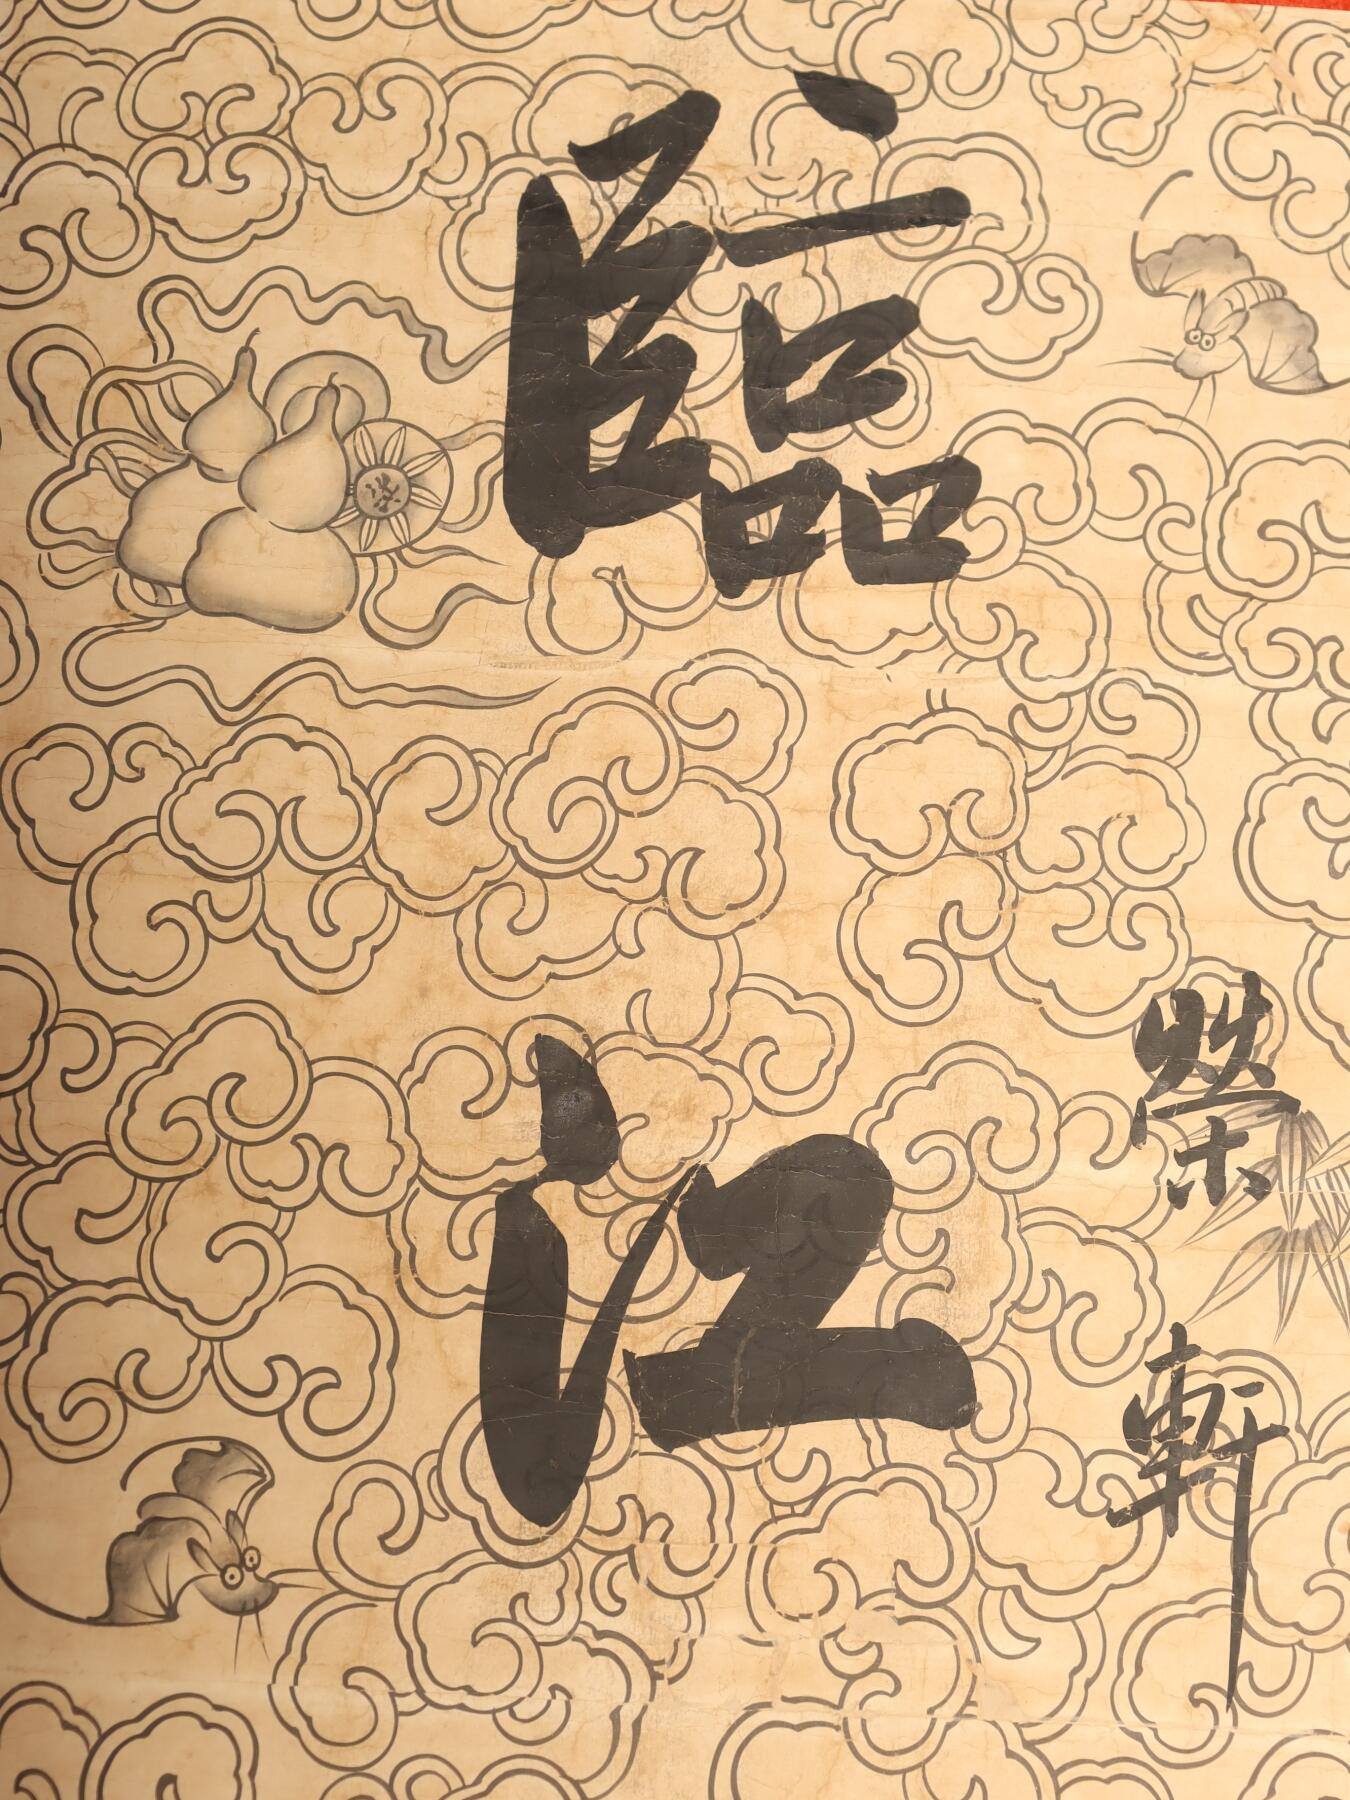 榮軒
臨江